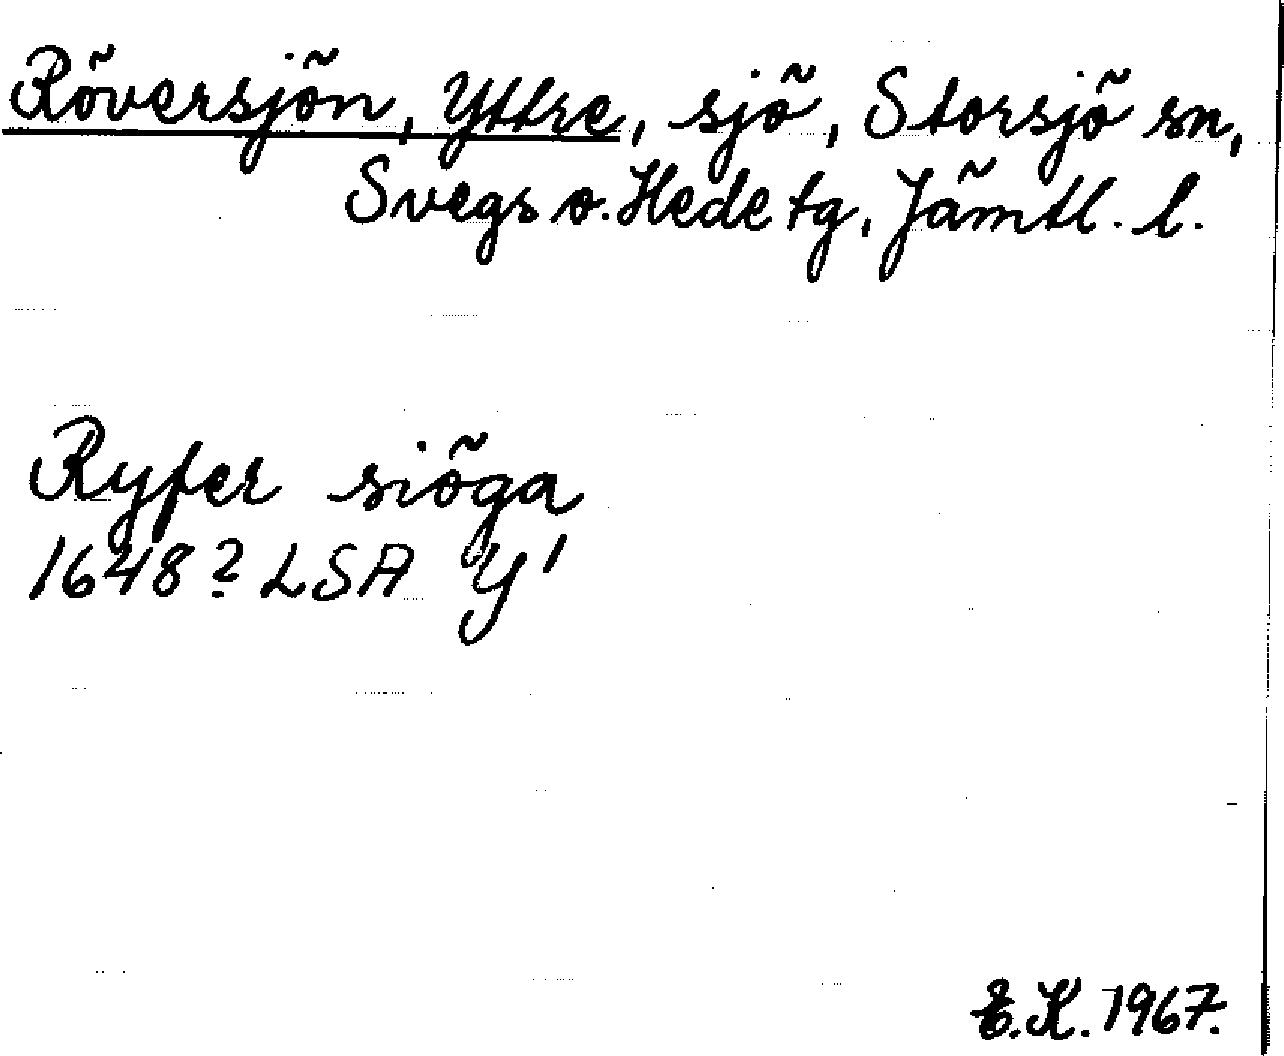 Röversjön, Yttre, sjö, Storsjö sn,
Svegs o. Hede tg, Jämtl. l.
Ryfer siöga
1648? LSA Y1
E.K. 1967.